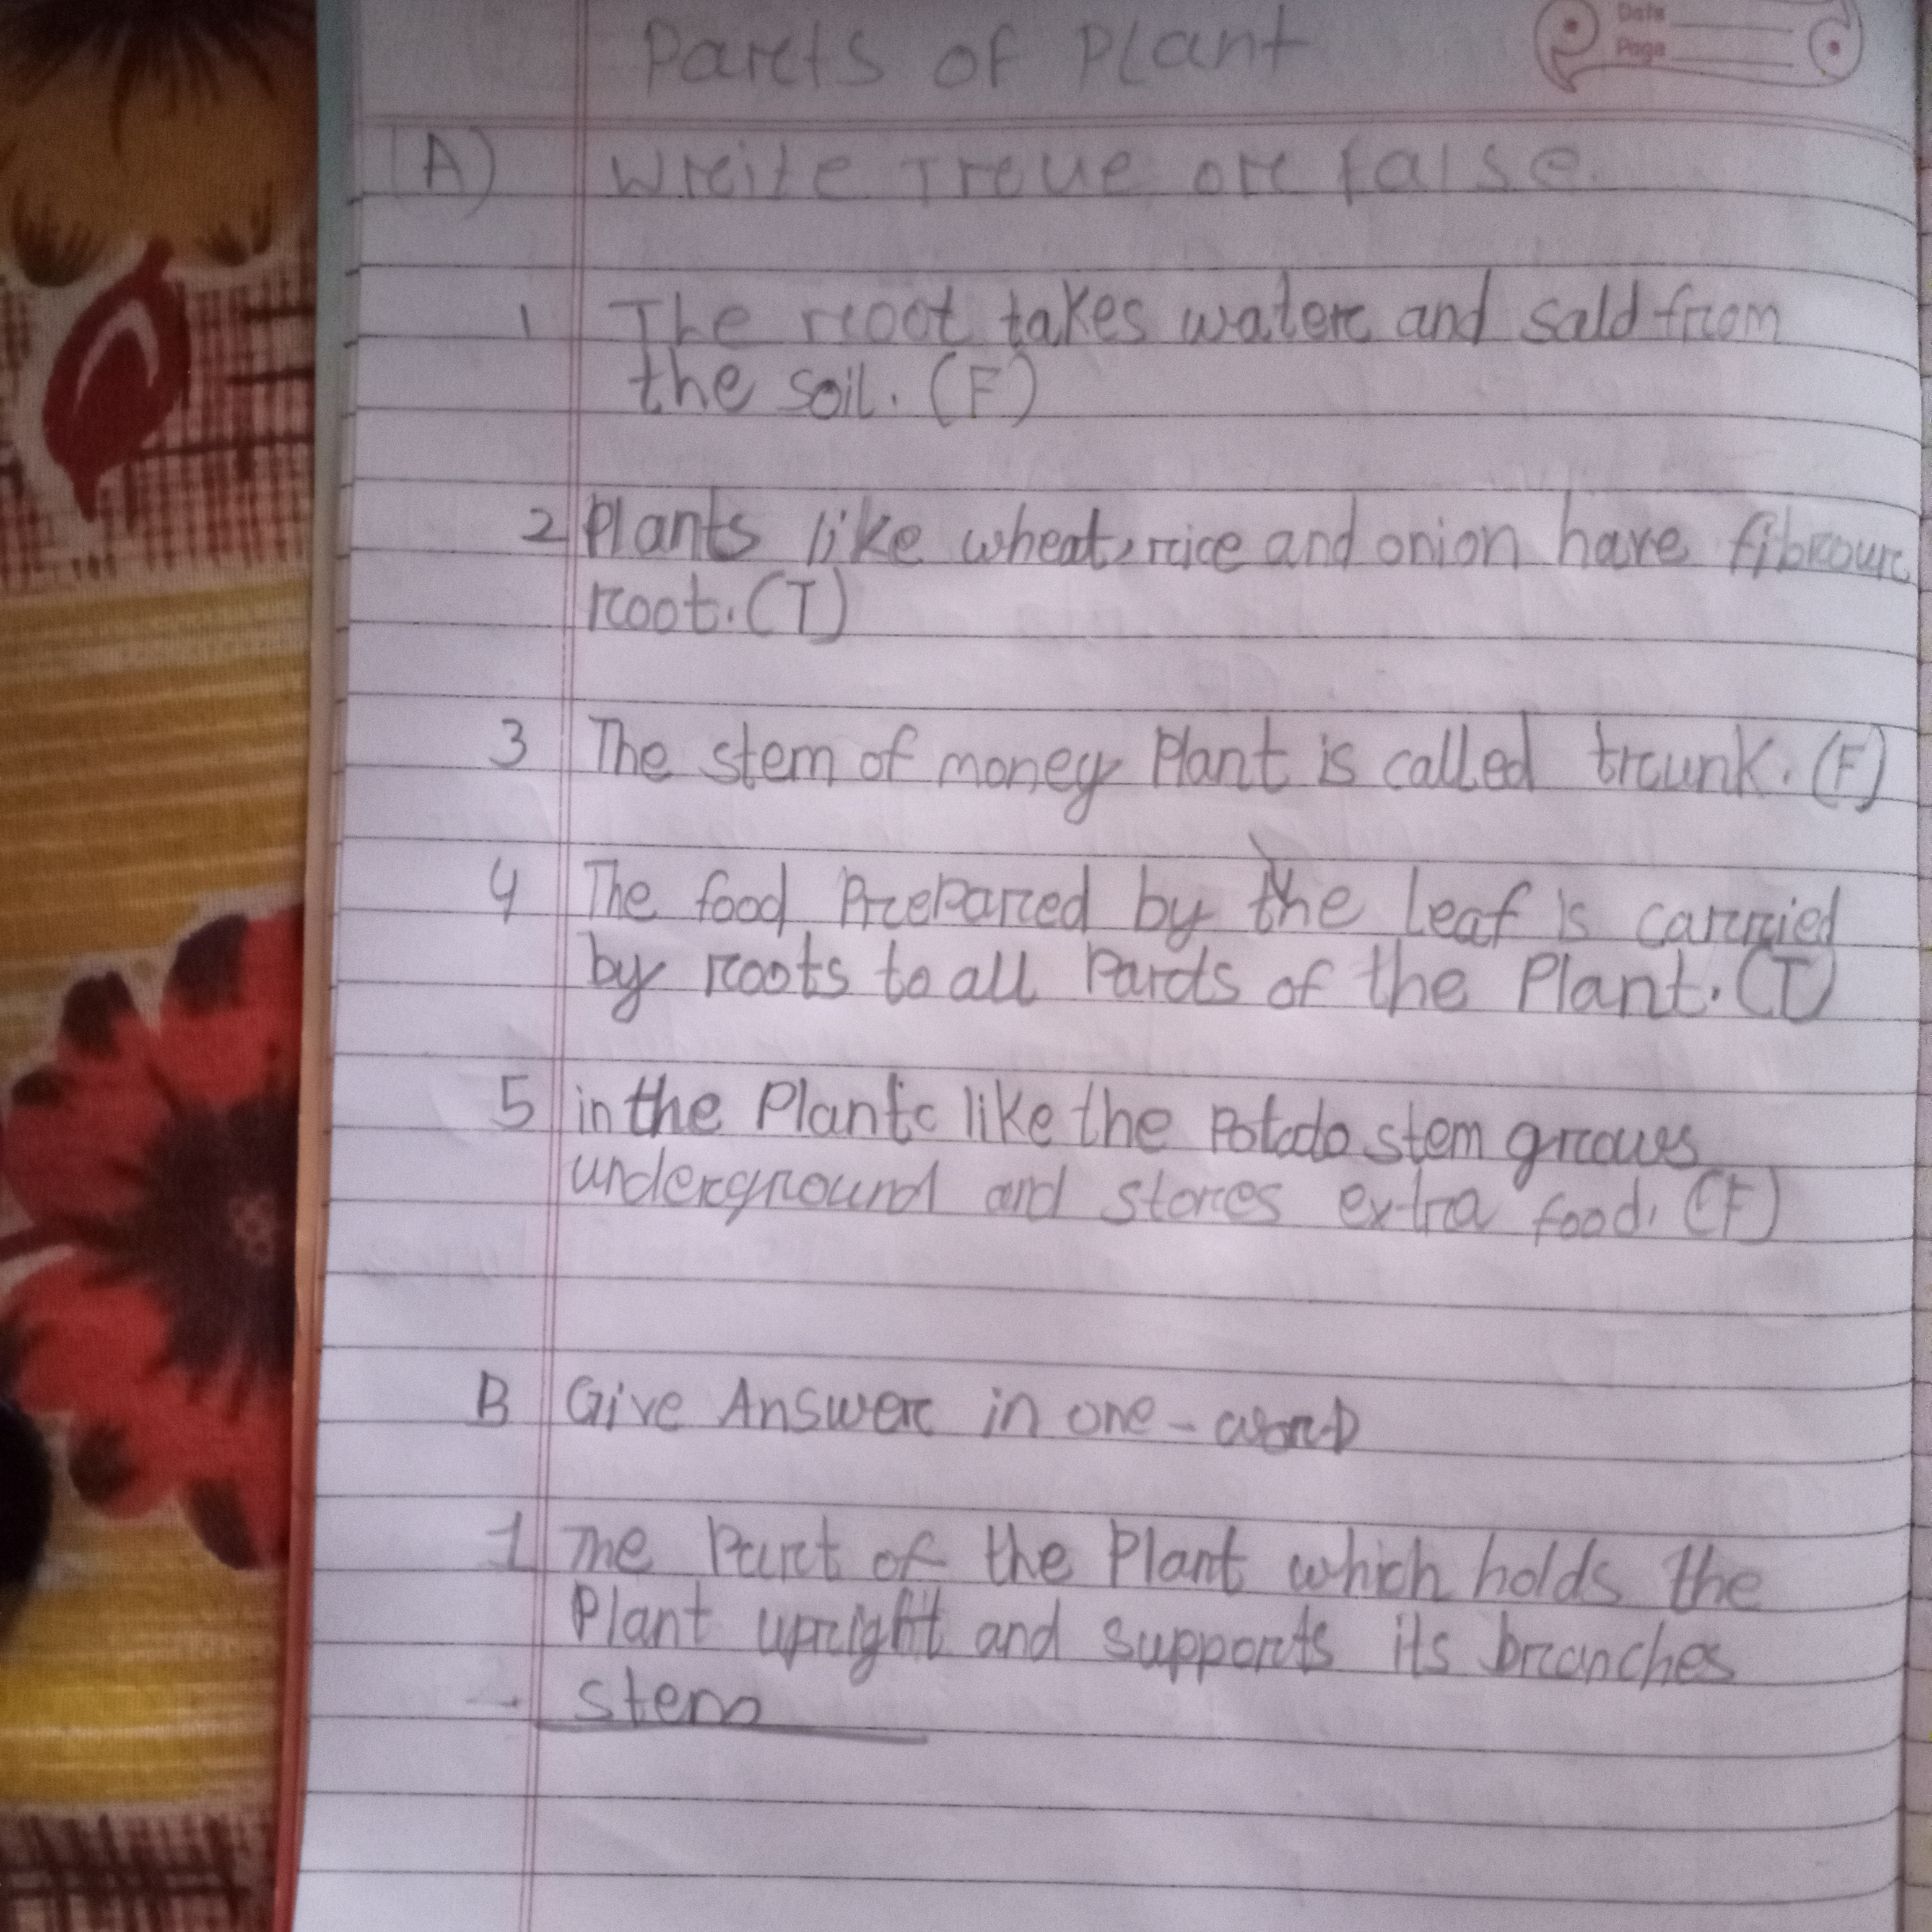 Parts of Plant
Date
Page
A) Write True or false.
1 The root takes water and sald from
the soil. (F)
2 Plants like wheat, rice and onion have fibrour
root. (T)
3 The stem of money Plant is called trunk. (F)
4 The food Prepared by the leaf is carried
by roots to all Pards of the Plant. (T)
5 in the Plantc like the Potado stem grows
underground and stores extra food. (F)
B Give Answer in one-word
1 The Part of the Plant which holds the
Plant upright and supports its branches
- stem